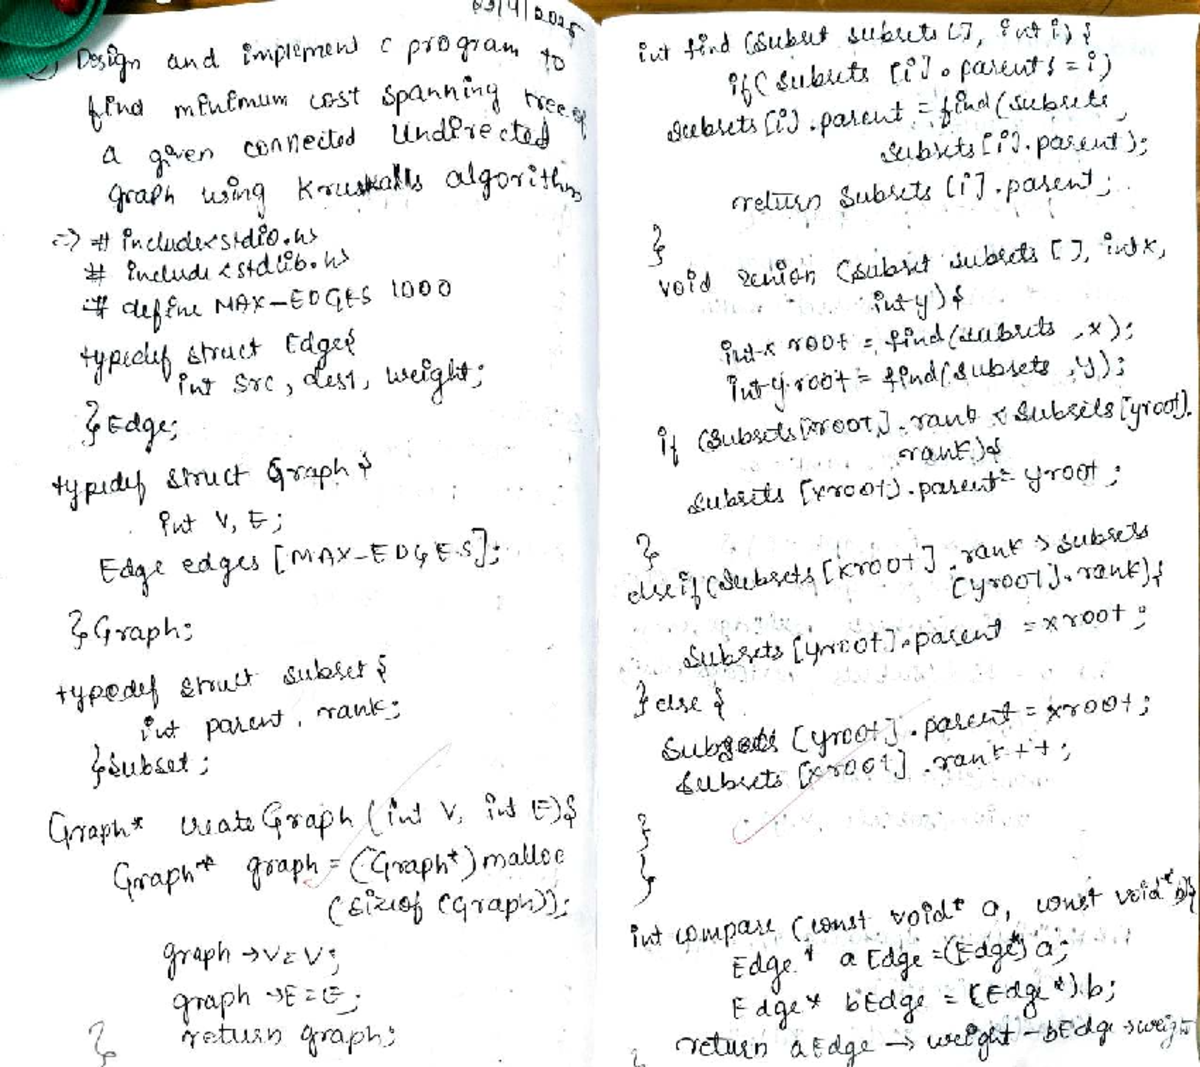 03/4/2025
Design and implement c program to
find minimum cost spanning tree of
a given connected Undirected
graph using Kruskalls algorithm
=> # include<stdio.h>
# include <stdlib.h>
# define MAX-EDGES 1000
typedef struct Edge{
int src, dest, weight;
} Edge;
typedef struct Graph {
int V, E;
Edge edges [MAX-EDGES];
} Graph;
typedef struct subset {
int parent, rank;
} Subset;
Graph* createGraph (int V, int E){
Graph* graph = (Graph*) malloc
(sizeof (Graph));
graph →V=V;
graph →E=E;
return graph;
}
int find (Subset subsets [], int i) {
if( subsets [i]. parent != i)
subsets[i].parent = find(subsets,
subsets[i].parent);
return Subsets [i].parent;
}
void union (Subset subsets [], int x,
int y) {
int x root = find(subsets, x);
int y root = find(subsets, y);
if (Subsets[xroot].rank < Subsets[yroot].
rank){
subsets [xroot].parent = yroot;
}
else if(subsets[xroot].rank > subsets
[yroot].rank){
Subsets [yroot].parent = xroot;
} else {
Subsets [yroot].parent = xroot;
subsets [xroot].rank++;
}
}
int compare (const void* a, const void* b){
Edge* aEdge =(Edge*) a;
Edge* bEdge = (Edge*).b;
return aEdge → weight - bEdge →weight